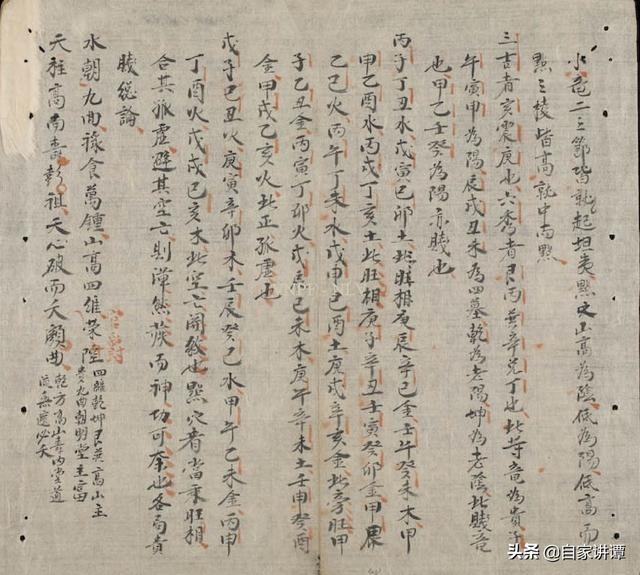 水竜二三節皆𬽦起坦夷㸃之山高為陰低為陽低高而
㸃三稜皆高就中而㸃
三吉者亥震庚也六秀者艮丙巽辛兌丁也此等竜為貴子
午寅甲為陽辰戌丑未為四墓乾為老陽坤為老陰此賤竜
也甲乙壬癸為陽亦賤也
丙子丁丑水戊寅己卯土此旺相庚辰辛巳金壬午癸未木甲
甲乙酉水丙戌丁亥土此旺相庚子辛丑壬寅癸卯金甲
己巳火丙午丁未水戊申己酉土庚戌辛亥金此旺甲
子乙丑金丙寅丁卯火戊辰己未木庚午辛未土壬申癸酉
金甲戌乙亥火此正孤虛也
戊子己丑火庚寅辛卯木壬辰癸巳水甲午乙未金丙申
丁酉火戊戌己亥木此空亡也㸃穴者當乘旺相
合其孤虛避其空亡則渾然而神功可奪也各局貴
賤總論
水朝九曲祿食萬鍾山高四維榮陞官爵四維乾坤艮巽高山主
貴九曲朝明堂主富
天柱高而壽彭祖天心破而夭顏曲乾方高山壽内堂
流無還必夭
头条 @自家讲谭